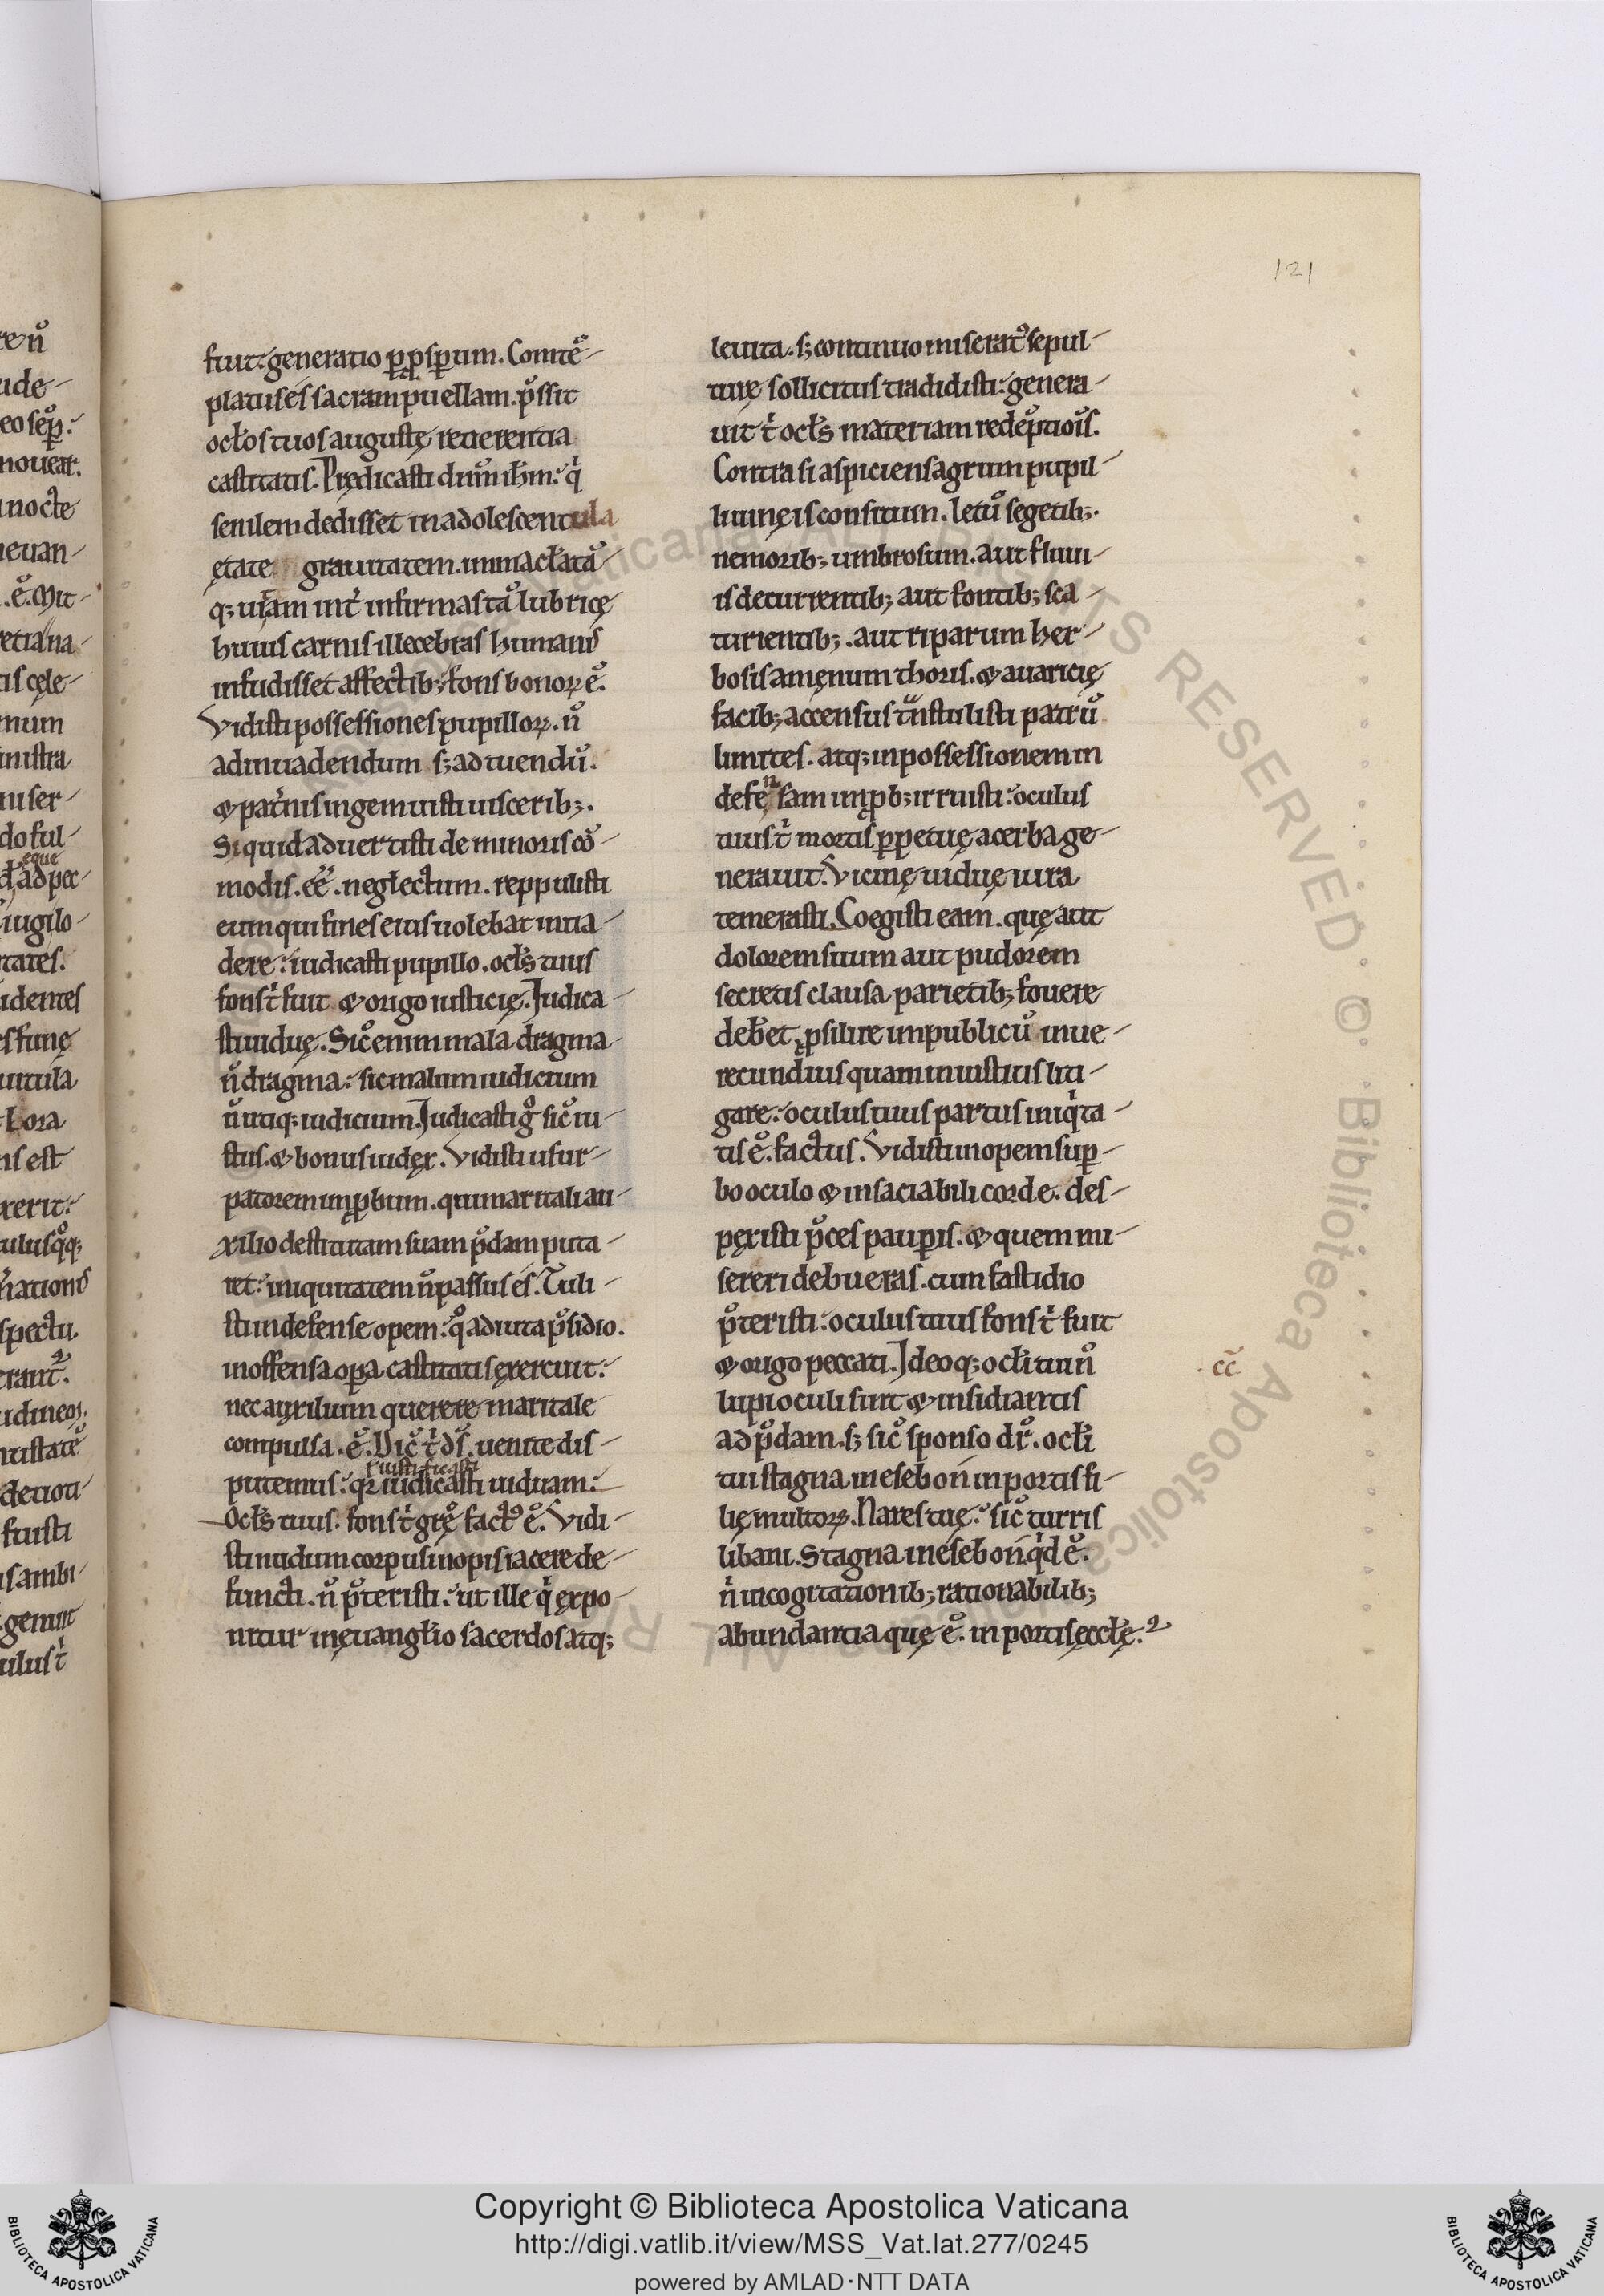 121
fiut: generatio ꝑꝓsꝑum. Contē-
platus és sacram puellam. p̄ssit
ocl̄os tuos augustę reuerentia
castitatis. Prędicasti dn̄m ihm̄: q̇
senilem dedisset in adolescentula
ętate grauitatem. immacl̄atā-
q; uiam int̄ infirmas tā lubricę
huius carnis illecebras humanis
infudisset affectib; fons bonoꝝ ē.
Vidisti possessiones pupilloꝝ. n̄
ad inuadendum s; ad tuendū.
& pat̄nis ingemuisti uiscerib;.
Si quid aduertisti de minoris cō-
modis. eē. neglectum. reppulisti
eum qui fines eius uolebat inua-
dere: iudicasti pupillo. ocl̄s tuus
fons t̄ fuit & origo iusticię. Judica-
sti uiduę. Sic̄ enim mala dragma
n̄ dragma: sic malum iudicium
n̄ utiq; iudicium. Judicasti g̊ sic̄ iu-
stus. & bonus iudęx. Vidisti usur-
patorem inꝓbum. qui maritali au-
xilio destitutam suam p̄dam puta-
ret: iniquitatem n̄ passus és. Tuli-
sti indefense opem: q̊ adiuta p̄sidio.
inoffensa oꝑa castitatis ęxercuit:
nec auxilium querere maritale
compulsa. ē. Dic̄ t̄ ds̄. uenite dis-
ł iustificasti
putemus: qꝛ iudicasti uiduam:
Ocl̄s tuus. fons t̄ grę̄ factꝰ ē. Vidi-
sti nudum corpus inopis iacere de-
functi. n̄ p̄teristi: ut ille q̇ ęxpo-
nitur in ęuangl̄io sacerdos atq;
leuita. s; continuo miseratꝰ sepul-
turę sollicitus tradidisti: genera-
uit t̄ ocl̄s materiam redēptiōis.
Contra si aspiciens agrum pupil-
li uineis consitum. letū segetib;.
nemorib; umbrosum. aut fluui-
is decurrentib; aut fontib; sca-
turientib;. aut riparum her-
bosis amęnum thoris. & auaricię
facib; accensus tͣnstulisti patrū
limites. atq; in possessionem in
defensam imꝓb; irruisti: oculus
tuus t̄ mortis ꝑpetuę acerba ge-
nerauit. Vicinę uiduę iura
temerasti. Coegisti eam. quę aut
dolorem suum aut pudorem
secretis clausa parietib; fouere
deb̄et ꝓsilire in publicū inue-
recundius quam iniustius liti-
gare: oculus tuus partus iniq̇ta-
tis ē. factus. Vidisti inopem suꝑ-
bo oculo & insaciabili corde. des-
pęxisti p̄ces pauꝑis. & quem mi-
sereri debueras. cum fastidio
p̄teristi: oculus tuus fons t̄ fuit
& origo peccati. Jdeoq; ocl̄i tui n̄
. cc̄
lupi oculi sint & insidiantis
ad p̄dam. s; sic̄ sponso dr̄. ocl̄i
tui stagna in esebon in portis fi-
lię multoꝝ. Nares tuę: sic̄ turris
libani. Stagna in esebon q̇d ē.
n̄ in cogitationib; rationabilib;
abundantia quę ē. in portis ęccl̄ę.
Copyright © Biblioteca Apostolica Vaticana
http://digi.vatlib.it/view/MSS_Vat.lat.277/0245
powered by AMLAD·NTT DATA